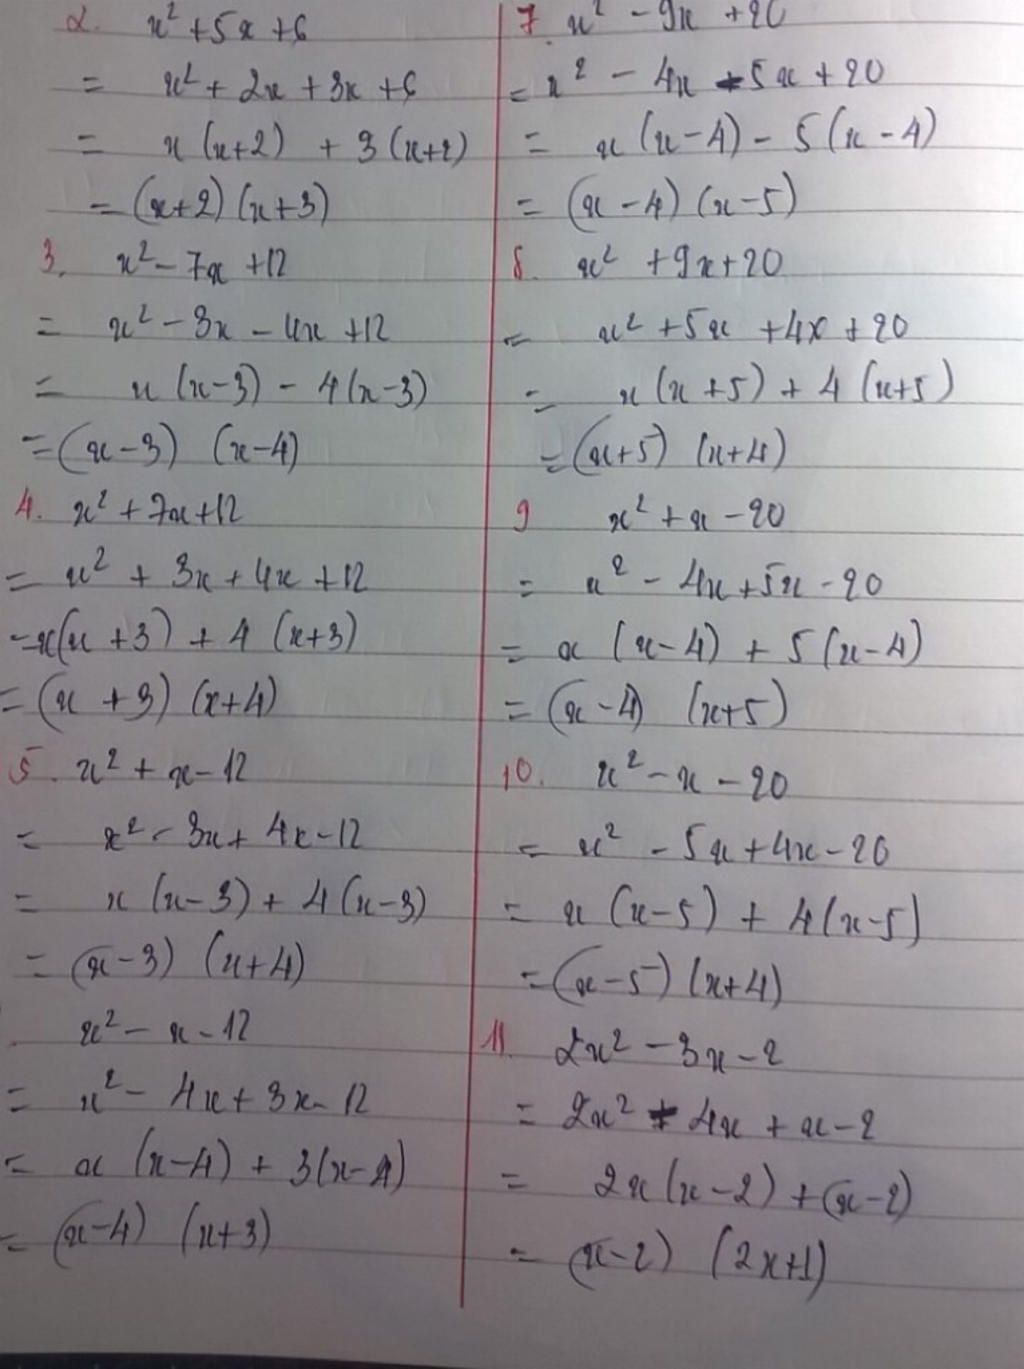 2. x² + 5x + 6
= x² + 2x + 3x + 6
= x (x+2) + 3 (x+2)
= (x+2) (x+3)
3. x² - 7x + 12
= x² - 3x - 4x + 12
= x (x-3) - 4 (x-3)
= (x-3) (x-4)
4. x² + 7x + 12
= x² + 3x + 4x + 12
= x (x+3) + 4 (x+3)
= (x+3) (x+4)
5. x² + x - 12
= x² - 3x + 4x - 12
= x (x-3) + 4 (x-3)
= (x-3) (x+4)
x² - x - 12
= x² - 4x + 3x - 12
= x (x-4) + 3 (x-4)
= (x-4) (x+3)
7. x² - 9x + 20
= x² - 4x - 5x + 20
= x (x-4) - 5 (x-4)
= (x-4) (x-5)
8. x² + 9x + 20
= x² + 5x + 4x + 20
= x (x+5) + 4 (x+5)
= (x+5) (x+4)
9 x² + x - 20
= x² - 4x + 5x - 20
= x (x-4) + 5 (x-4)
= (x-4) (x+5)
10. x² - x - 20
= x² - 5x + 4x - 20
= x (x-5) + 4 (x-5)
= (x-5) (x+4)
11. 2x² - 3x - 2
= 2x² - 4x + x - 2
= 2x (x-2) + (x-2)
= (x-2) (2x+1)